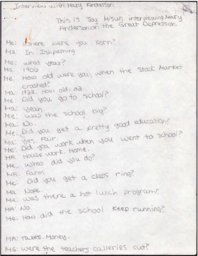 Interview with Mary Anderson
This is Joy interviewing Mary
Anderson on the Great Depression.
Me: Where were you born?
MA: In
Me: What year?
MA: 1900
Me: How old were you, when the Stock Market
crashed?
MA:
Me: Did you go to school?
MA: Yeah.
Me: Was the school big?
MA: No.
Me: Did you get a pretty good education?
MA: Yes,
Me: Did you work when you went to school?
MA: House work. Home.
Me: What did you do?
MA: Farm
Me: Did you get a class ring?
MA: Nope
Me: Was there a hot lunch program?
MA: No
Me: How did the school keep running?
MA: Taxes, Money.
Me: Were the teachers salleries cut?